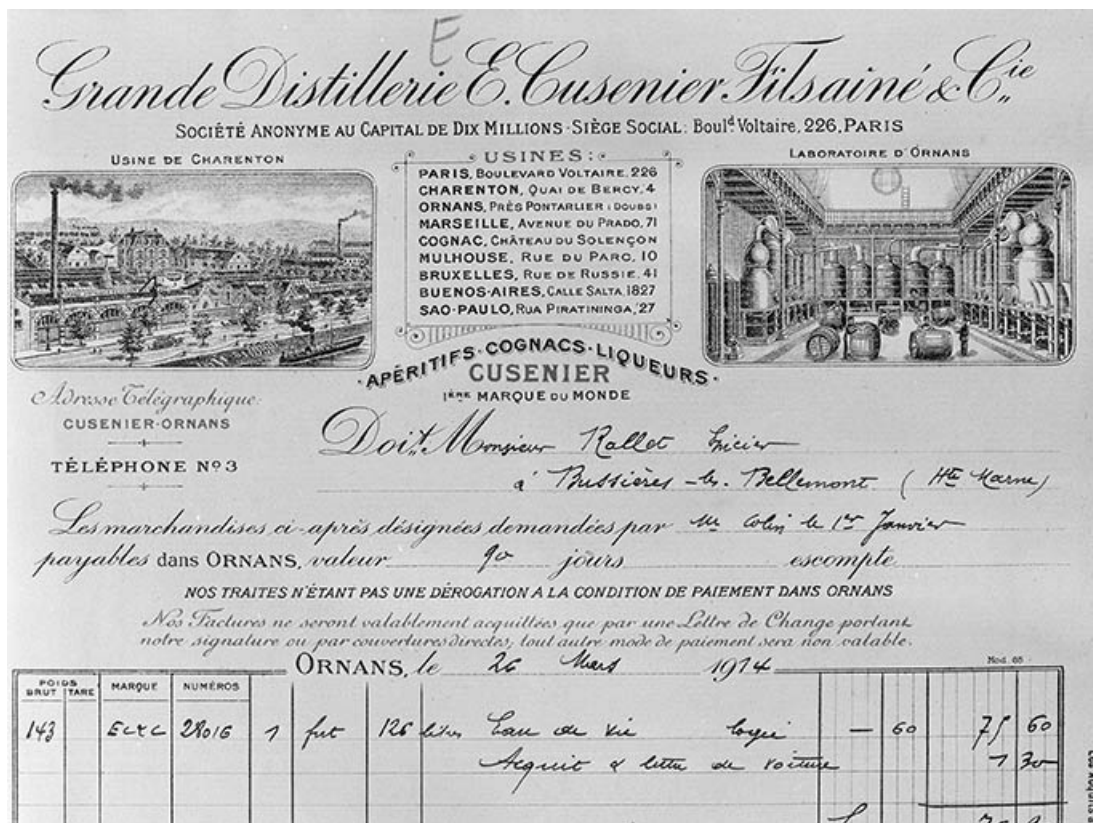 E
Grande Distillerie E. Cusenier Fils aîné & Cie
SOCIÉTÉ ANONYME AU CAPITAL DE DIX MILLIONS - SIÈGE SOCIAL: Bould Voltaire, 226, PARIS
USINE DE CHARENTON
USINES:
PARIS, BOULEVARD VOLTAIRE, 226
CHARENTON, QUAI DE BERCY, 4
ORNANS, PRÈS PONTARLIER (DOUBS)
MARSEILLE, AVENUE DU PRADO, 71
COGNAC, CHÂTEAU DU SOLENÇON
MULHOUSE, RUE DU PARC, 10
BRUXELLES, RUE DE RUSSIE, 41
BUENOS-AIRES, CALLE SALTA, 1827
SAO-PAULO, RUA PIRATININGA, 27
LABORATOIRE D'ORNANS
APÉRITIFS - COGNACS - LIQUEURS
CUSENIER
1ÈRE MARQUE DU MONDE
Adresse Télégraphique:
CUSENIER-ORNANS
TÉLÉPHONE No 3
Doit Monsieur Rallet Epicier
à Bussières-les-Bellemont (Hte Marne)
Les marchandises ci-après désignées demandées par Mr Colin le 1er Janvier
payables dans ORNANS, valeur 90 jours escompte
NOS TRAITES N'ÉTANT PAS UNE DÉROGATION A LA CONDITION DE PAIEMENT DANS ORNANS
Nos Factures ne seront valablement acquittées que par une Lettre de Change portant
notre signature ou par couvertures directes; tout autre mode de paiement sera non valable.
ORNANS, le 26 Mars 1914
Mod. 65
POIDS
BRUT TARE MARQUE NUMÉROS
143 EC&C 28016 1 fut 126 litres Eau de vie logé — 60 75 60
Acquit & lettre de voiture 1 30